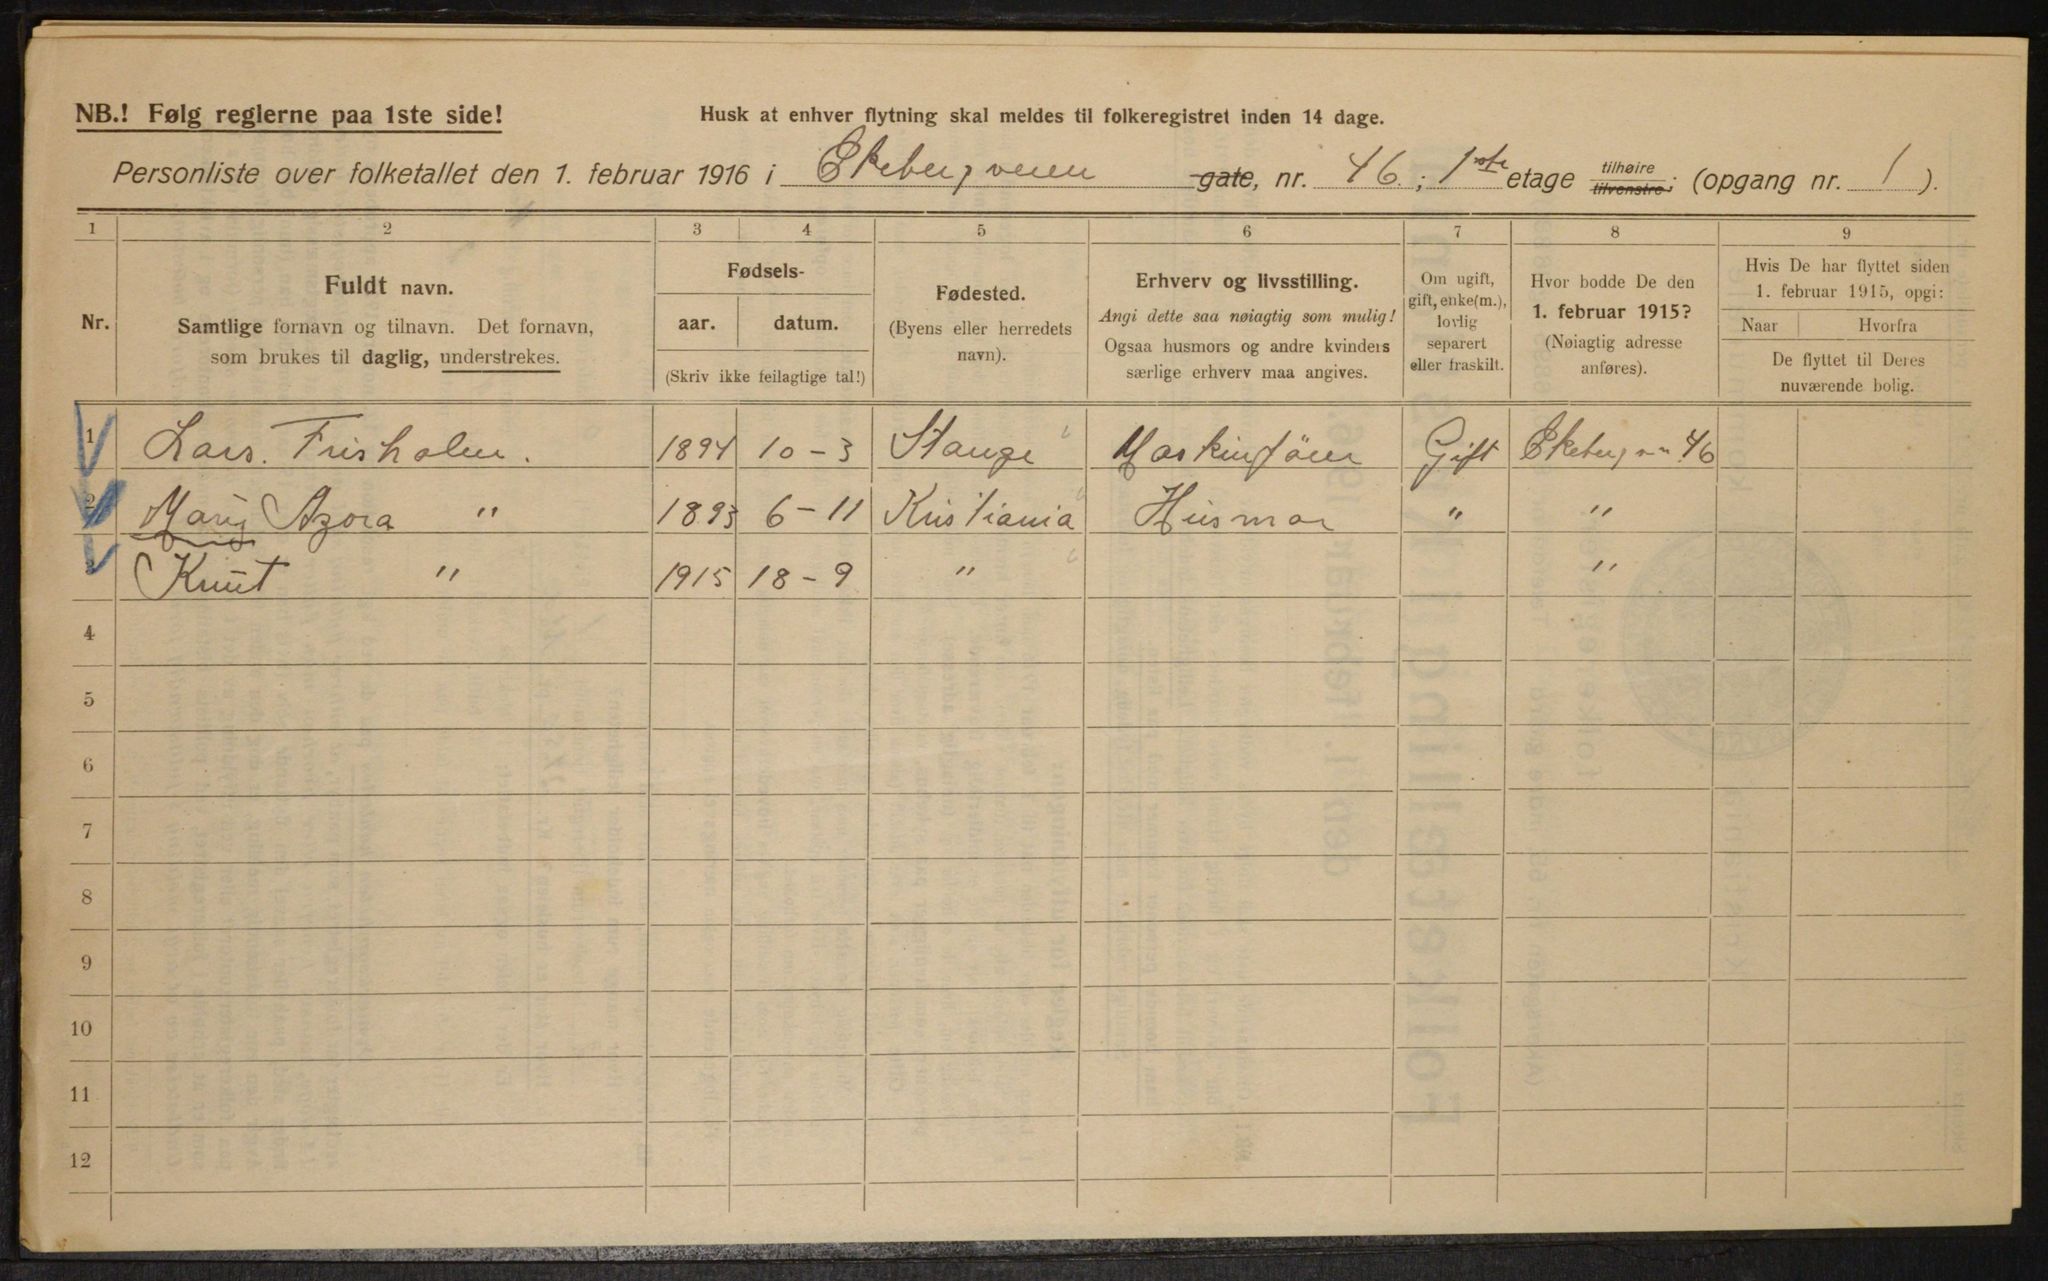 NB.! Følg reglerne paa 1ste side!
Husk at enhver flytning skal meldes til folkeregistret inden 14 dage.
Personliste over folketallet den 1. februar 1916 i Ekebergveien gate, nr. 46. ; 1ste etage tilhøire tilvenstre; (opgang nr. 1 ).
1 2 3 4 5 6 7 8 9
Nr.
Fuldt navn.
Samtlige fornavn og tilnavn. Det fornavn,
som brukes til daglig, understrekes.
Fødsels-
aar. datum.
(Skriv ikke feilagtige tal!)
Fødested.
(Byens eller herredets
navn).
Erhverv og livsstilling.
Angi dette saa nøiagtig som mulig!
Ogsaa husmors og andre kvinders
særlige erhverv maa angives.
Om ugift,
gift, enke(m.),
lovlig
separert
eller fraskilt.
Hvor bodde De den
1. februar 1915?
(Nøiagtig adresse
anføres).
Hvis De har flyttet siden
1. februar 1915, opgi:
Naar Hvorfra
De flyttet til Deres
nuværende bolig.
1 Lars. Frisholm. 1894 10-3 Stange Gift Ekebergvn 46
2 Azora " 1893 6-11 Kristiania Husmor " "
3 Knut " 1915 18-9 " "
4
5
6
7
8
9
10
11
12